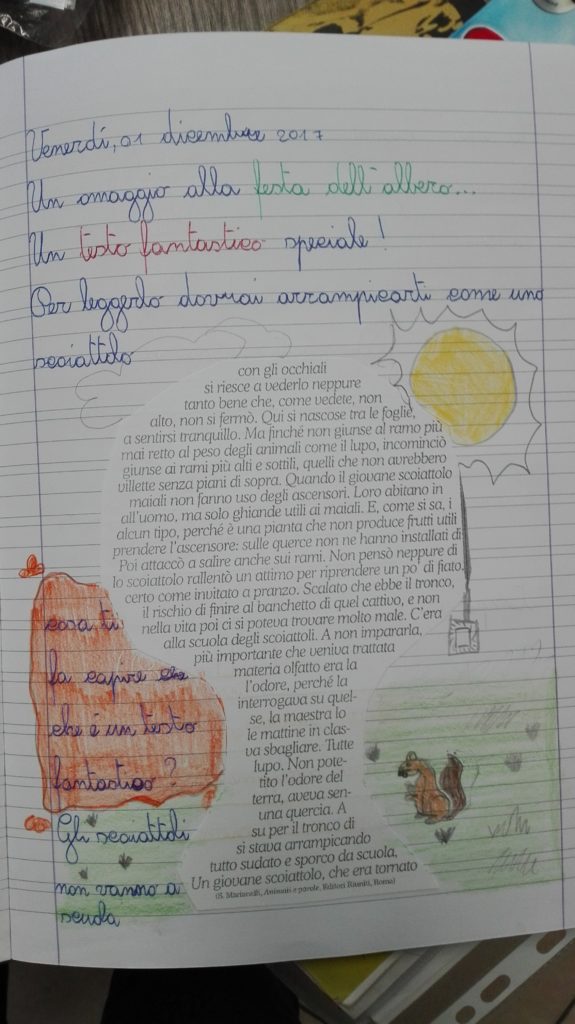 Venerdí, 01 dicembre 2017
Un omaggio alla festa dell'albero...
Un testo fantastico speciale!
Per leggerlo dovrai arrampicarti come uno
scoiattolo
con gli occhiali
si riesce a vederlo neppure
tanto bene che, come vedete, non
alto, non si fermò. Qui si nascose tra le foglie,
a sentirsi tranquillo. Ma finché non giunse al ramo più
mai retto al peso degli animali come il lupo, incominciò
giunse ai rami più alti e sottili, quelli che non avrebbero
villette senza piani di sopra. Quando il giovane scoiattolo
maiali non fanno uso degli ascensori. Loro abitano in
all'uomo, ma solo ghiande utili ai maiali. E, come si sa, i
alcun tipo, perché è una pianta che non produce frutti utili
prendere l'ascensore: sulle querce non ne hanno installati di
Poi attaccò a salire anche sui rami. Non pensò neppure di
lo scoiattolo rallentò un attimo per riprendere un po' di fiato.
certo come invitato a pranzo. Scalato che ebbe il tronco,
il rischio di finire al banchetto di quel cattivo, e non
nella vita poi ci si poteva trovare molto male. C'era
alla scuola degli scoiattoli. A non impararla,
più importante che veniva trattata
materia olfatto era la
l'odore, perché la
interrogava su quel-
se, la maestra lo
le mattine in clas-
va sbagliare. Tutte
lupo. Non pote-
tito l'odore del
terra, aveva sen-
una quercia. A
su per il tronco di
si stava arrampicando
tutto sudato e sporco da scuola,
Un giovane scoiattolo, che era tornato
(S. Marianelli, Animali e parole, Editori Riuniti, Roma)
cosa ti
fa capire
che è un testo
fantastico ?
Gli scoiattoli
non vanno a
scuola